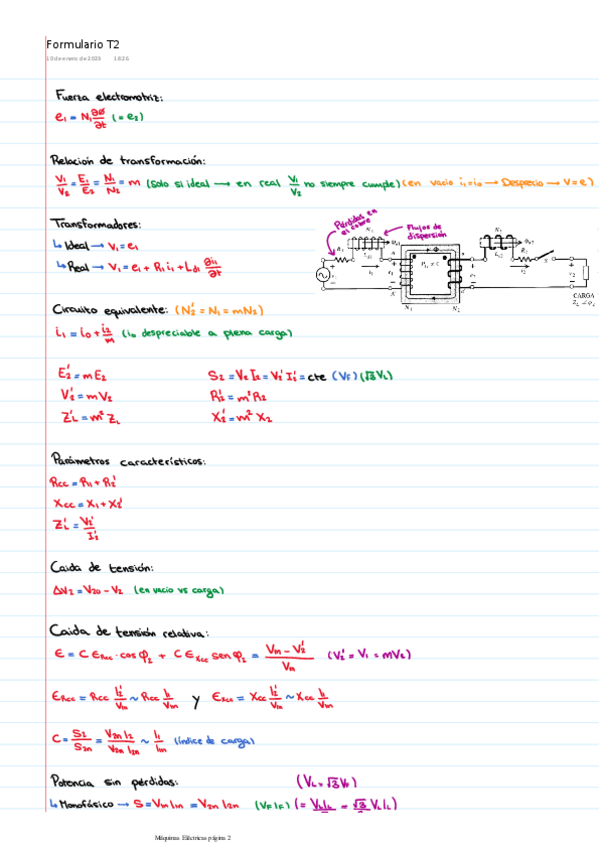 Formulario T2
Fuerza electromotriz:
e₁ = N₁ ∂Ø/∂t (= e₂)
Relación de transformación:
V₁/V₂ = E₁/E₂ = N₁/N₂ = m (Solo si ideal → en real V₁/V₂ no siempre cumple) (en vacio i₁=i₀ → Desprecio → V=e)
Transformadores:
↳ Ideal → V₁ = e₁
↳ Real → V₁ = e₁ + R₁ i₁ + Ld₁ ∂i₁/∂t
Pérdidas en el cobre
Flujos de dispersión
N₁ N₂
CARGA
Circuito equivalente: (N₂' = N₁ = mN₂)
i₁ = i₀ + i₂/m (i₀ despreciable a plena carga)
E₂' = mE₂
S₂ = V₂ I₂ = V₂' I₂' = cte (VF) (√3 VL)
V₂' = mV₂
R₂' = m²R₂
ZL' = m² ZL
X₂' = m² X₂
Parámetros característicos:
Rcc = R₁ + R₂'
Xcc = X₁ + X₂'
ZL' = V₂'/I₂'
Caida de tensión:
ΔV₂ = V₂₀ - V₂ (en vacio vs carga)
Caida de tensión relativa:
Є = C ЄRcc · cos φ₂ + C ЄXcc sen φ₂ = (V₁n - V₂')/V₁n (V₂' = V₁ = mV₂)
ЄRcc = Rcc I₂'/V₁n ~ Rcc I₁/V₁n y ЄXcc = Xcc I₂'/V₁n ~ Xcc I₁/V₁n
C = S₂/S₂n = V₂n I₂/V₂n I₂n ~ I₁/I₁n (índice de carga)
Potencia sin pérdidas: (VL = √3 VF)
↳ Monofásico → S = V₁n I₁n = V₂n I₂n (VF IF)
Máquinas Eléctricas página 2